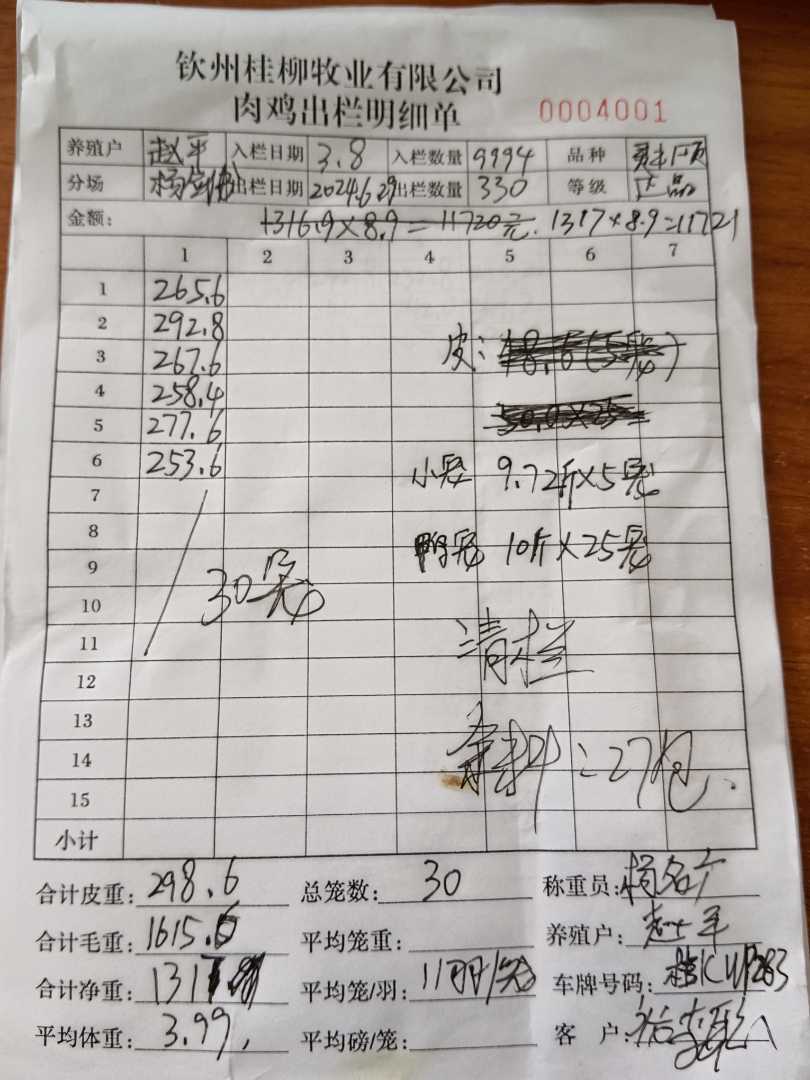 钦州桂柳牧业有限公司
肉鸡出栏明细单 0004001
养殖户 赵平 入栏日期 3.8 入栏数量 9994 品种
分场 出栏日期 2024.6.29 出栏数量 330 等级 正品
金额: 1316.9×8.9=11720元. 1317×8.9=11721
1 2 3 4 5 6 7
1 265.6
2 292.8
3 267.6 皮:
4 258.4
5 277.6
6 253.6 小笼 9.7斤×5笼
7
8 鸭笼 10斤×25笼
9 30笼
10
11 清栏
12
13
14 余料:27包
15
小计
合计皮重: 298.6 总笼数: 30 称重员:
合计毛重: 1615.6 平均笼重: 养殖户: 赵平
合计净重: 1317 平均笼/羽: 11羽/笼 车牌号码:
平均体重: 3.99 平均磅/笼: 客 户: